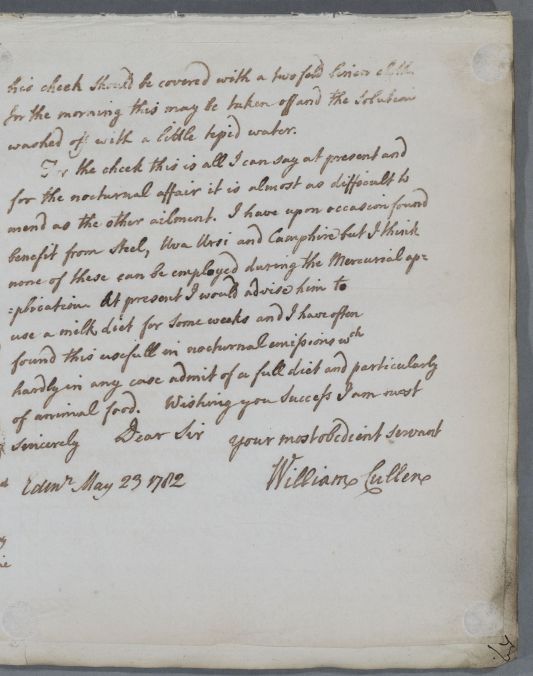 his cheek should be covered with a twofold linen cloth
In the morning this may be taken off and the solution
washed off with a little tepid water.
For the cheek this is all I can say at present and
for the nocturnal affair it is almost as difficult to
mend as the other ailment. I have upon occasion found
benefit from Steel, Uva Ursi and Camphire but I think
none of these can be employed during the Mercurial ap=
=plication. At present I would advise him to
use a milk diet for some weeks and I have often
found this usefull in nocturnal emissions wch
hardly in any case admit of a full diet and particularly
of animal food. Wishing you Success I am most
sincerely Dear Sir your most obedient servant
Edinr. May 23 1782 William Cullen